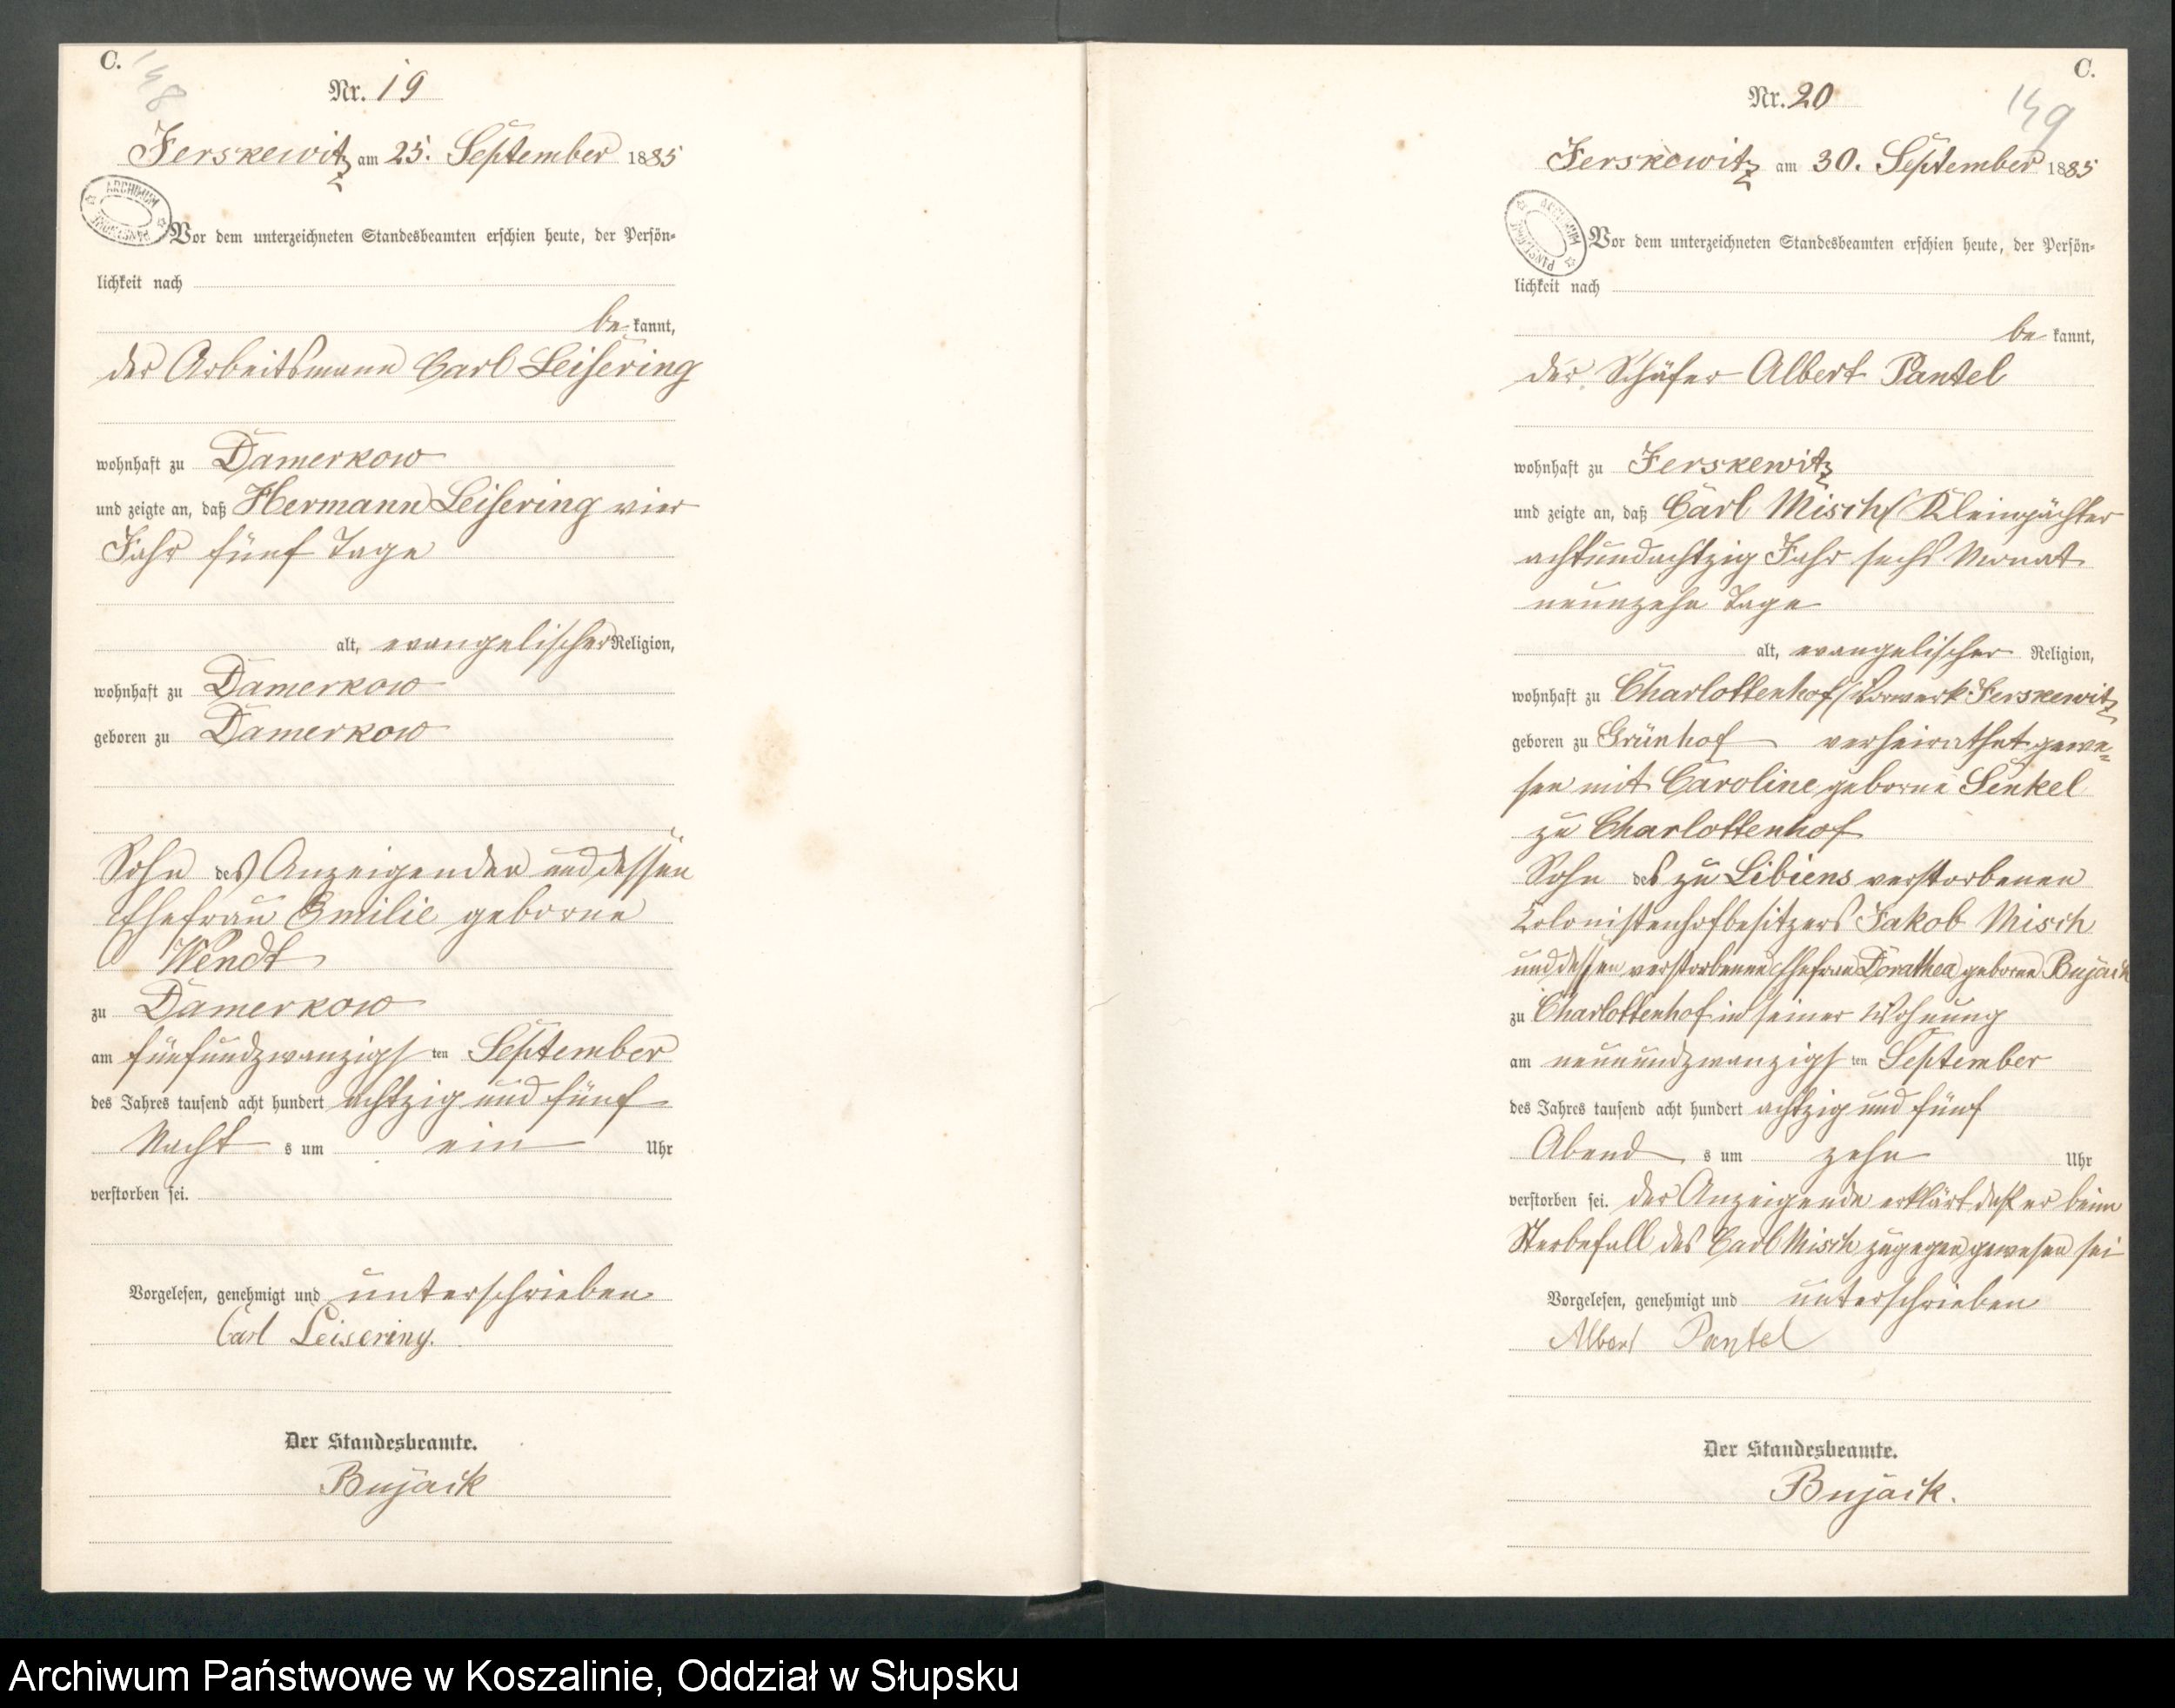 C.
148
Nr. 19
Ferskewitz am 25. September 1885
ARCHIWUM PAŃSTWOWE
Vor dem unterzeichneten Standesbeamten erschien heute, der Persön-
lichkeit nach
be kannt,
der Arbeitsmann Carl Leisering
wohnhaft zu Damerkow
und zeigte an, daß Hermann Leisering vier
Jahr fünf Tage
alt, evangelischer Religion,
wohnhaft zu Damerkow
geboren zu Damerkow
Sohn des Anzeigenden und dessen
Ehefrau Emilie geborne
Wendt
zu Damerkow
am fünfundzwanzigsten September
des Jahres tausend acht hundert achtzig und fünf
Nacht s um ein Uhr
verstorben sei.
Vorgelesen, genehmigt und unterschrieben
Carl Leisering.
Der Standesbeamte.
Bujack
C.
149
Nr. 20
Ferskewitz am 30. September 1885
ARCHIWUM PAŃSTWOWE
Vor dem unterzeichneten Standesbeamten erschien heute, der Persön-
lichkeit nach
be kannt,
der Schäfer Albert Pantel
wohnhaft zu Ferskewitz
und zeigte an, daß Carl Misch, Kleinpächter
achtundachtzig Jahr sechs Monat
neunzehn Tage
alt, evangelischer Religion,
wohnhaft zu Charlottenhof, Vorwerk Ferskewitz
geboren zu Grünhof verheirathet gewe-
sen mit Caroline geborne Senkel
zu Charlottenhof
Sohn des zu Libiens verstorbenen
Kolonistenhofbesitzers Jakob Misch
und dessen verstorbenen Ehefrau Dorathea geborne Bujack
zu Charlottenhof in seiner Wohnung
am neunundzwanzigsten September
des Jahres tausend acht hundert achtzig und fünf
Abend s um zehn Uhr
verstorben sei. der Anzeigende erklärt daß er beim
Sterbefall des Carl Misch zugegen gewesen sei
Vorgelesen, genehmigt und unterschrieben
Albert Pantel
Der Standesbeamte.
Bujack.
Archiwum Państwowe w Koszalinie, Oddział w Słupsku